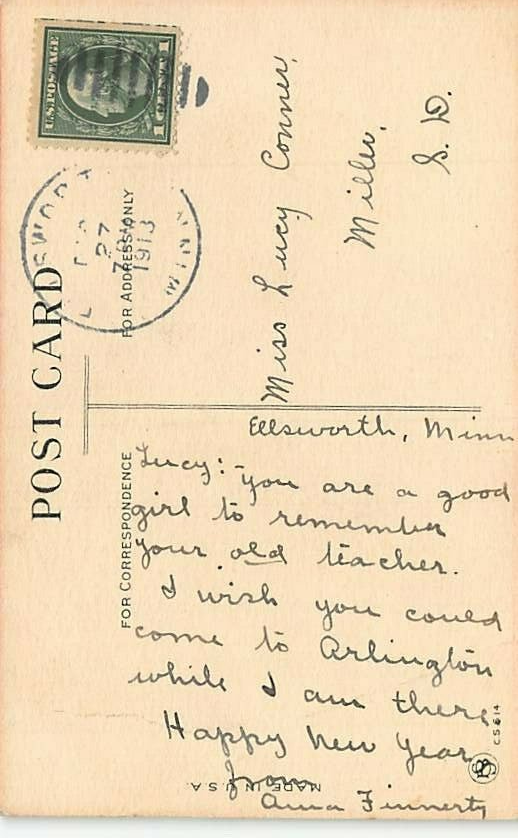 POST CARD
FOR ADDRESS ONLY
U.S. POSTAGE
27
1913
MINN
Miss Lucy Conner,
Miller,
S. D.
FOR CORRESPONDENCE
Ellsworth, Minn
Lucy:- you are a good
girl to remember
your old teacher.
I wish you could
come to Arlington
while I am there,
Happy New Year
from
Anna Finnerty
MADE IN U.S.A.
C5614